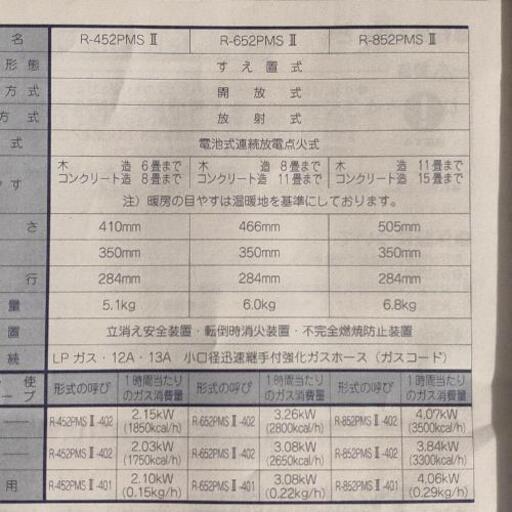 名 R-452PMSⅡ R-652PMSⅡ R-852PMSⅡ
形態 すえ置式
方式 開放式
方式 放射式
式 電池式連続放電点火式
やす 木造 6畳まで コンクリート造 8畳まで 木造 8畳まで コンクリート造 11畳まで 木造 11畳まで コンクリート造 15畳まで
注）暖房の目やすは温暖地を基準にしております。
さ 410mm 466mm 505mm
350mm 350mm 350mm
行 284mm 284mm 284mm
量 5.1kg 6.0kg 6.8kg
置 立消え安全装置・転倒時消火装置・不完全燃焼防止装置
続 LPガス・12A・13A 小口径迅速継手付強化ガスホース（ガスコード）
使 形式の呼び 1時間当たりのガス消費量 形式の呼び 1時間当たりのガス消費量 形式の呼び 1時間当たりのガス消費量
ープ
R-452PMSⅡ-402 2.15kW (1850kcal/h) R-652PMSⅡ-402 3.26kW (2800kcal/h) R-852PMSⅡ-402 4.07kW (3500kcal/h)
R-452PMSⅡ-402 2.03kW (1750kcal/h) R-652PMSⅡ-402 3.08kW (2650kcal/h) R-852PMSⅡ-402 3.84kW (3300kcal/h)
用 R-452PMSⅡ-401 2.10kW (0.15kg/h) R-652PMSⅡ-401 3.08kW (0.22kg/h) R-852PMSⅡ-401 4.06kW (0.29kg/h)